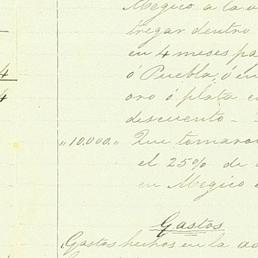 Megico a la
tregar dentro
en 4 meses pa
4 ó Puebla, ó en
4 oro ó plata e
descuento -
"10,000" Que tomaro
el 25% de
en Megico
Gastos
Gastos hechos en la ad